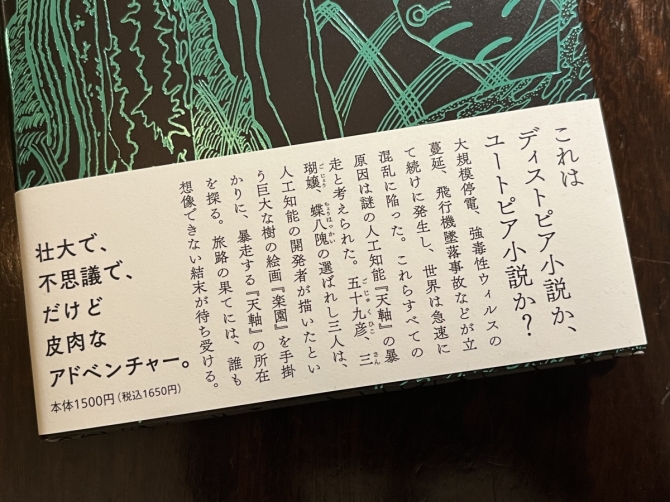 これは
ディストピア小説か、
ユートピア小説か?
大規模停電、強毒性ウィルスの
蔓延、飛行機墜落事故などが立
て続けに発生し、世界は急速に
混乱に陥った。これらすべての
原因は謎の人工知能『天軸』の暴
ごじゅくひこ さん
走と考えられた。五十九彦、三
ごじょう ちょうはっかい
瑚嬢、蝶八隗の選ばれし三人は、
人工知能の開発者が描いたとい
う巨大な樹の絵画『楽園』を手掛
かりに、暴走する『天軸』の所在
を探る。旅路の果てには、誰も
想像できない結末が待ち受ける。
壮大で、
不思議で、
だけど
皮肉な
アドベンチャー。
本体1500円(税込1650円)